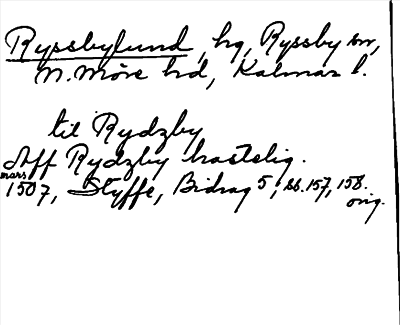 Ryssbylund, hg, Ryssby sn,
N. Möre hd, Kalmar l.
til Rydzby
Aff Rydzby hastelig.
mars
1507, Styffe, Bidrag 5, ss. 157, 158.
orig.